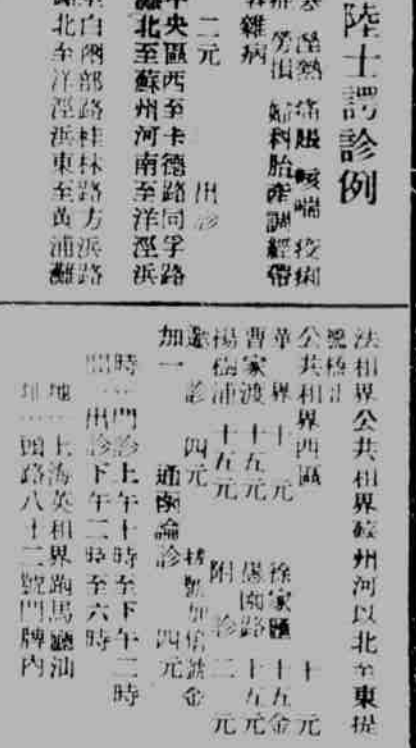 陸士諤診例
寒 溼熱 痛脹 咳喘 疫痢
勞傷 婦科胎產調經帶
雜病
二元 出診
中央區西至卡德路同孚路
北至蘇州河南至洋涇浜
白爾部路桂林路方浜路
北至洋涇浜東至黃浦灘
法租界公共租界蘇州河以北至東提
籃橋止 十元
公共租界西區
華界 十元 徐家匯 十五金
曹家渡 十五元 愚園路 十五元
楊樹浦 十五元 附診 二元
診 四元 拔號加倍
加一 通函論診 四元
時 門診上午十時至下午二時
間 出診下午二時至六時
地 上海英租界跑馬廳汕
址 頭路八十二號門牌內